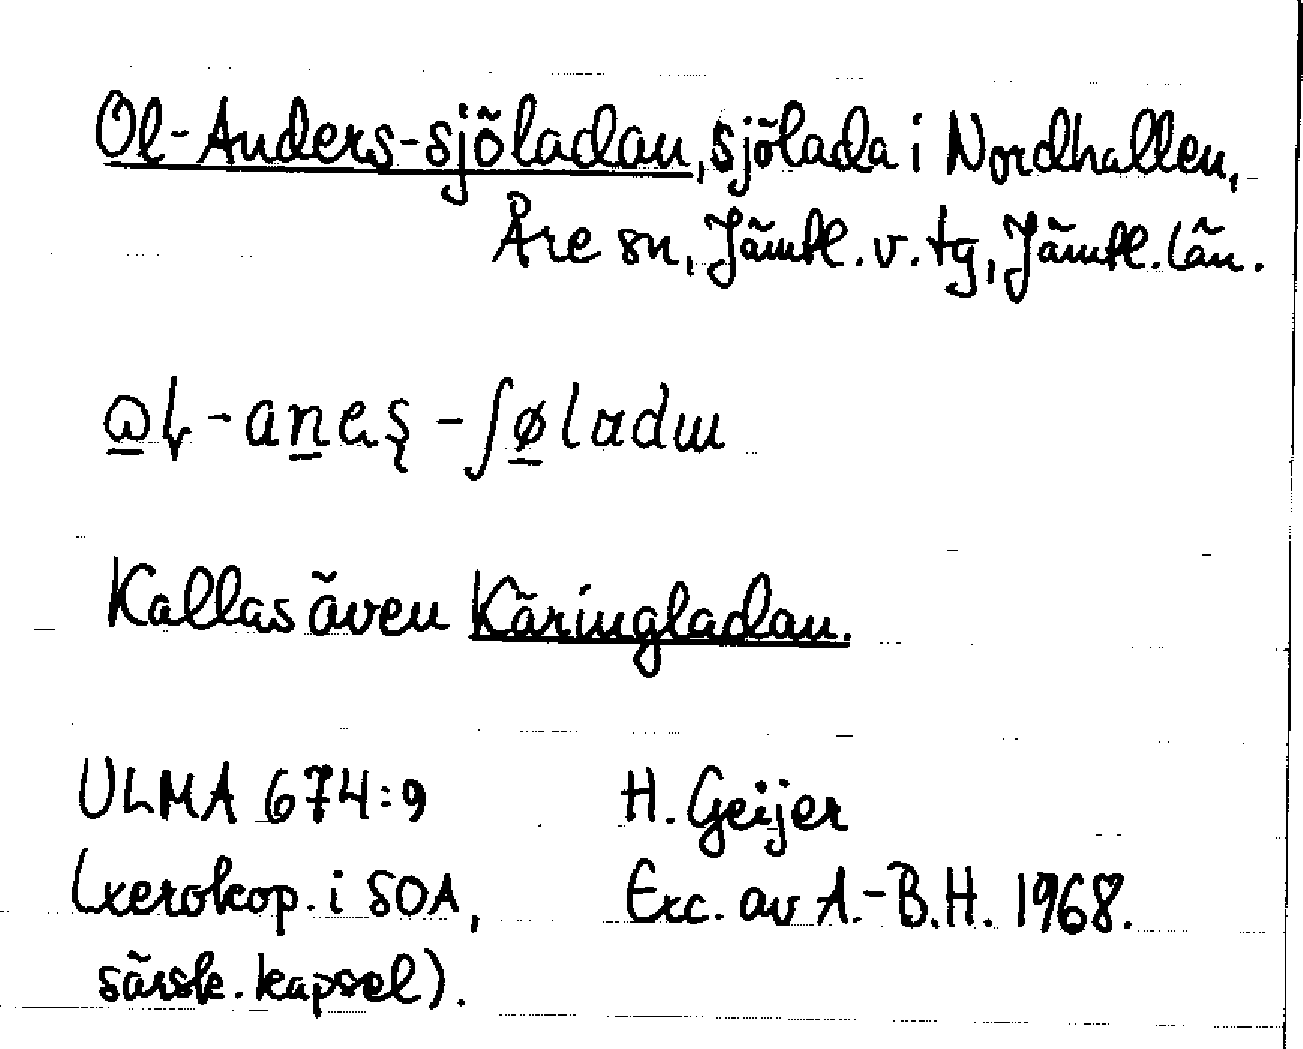 Ol-Anders-sjöladan, sjölada i Nordhallen,
Åre sn, Jämtl. v. tg, Jämtl. län.
Kallas även Käringladan.
ULMA 674:9 H. Geijer
(xerokop. i SOA, Exc. av A.-B.H. 1968.
särsk. kapsel).